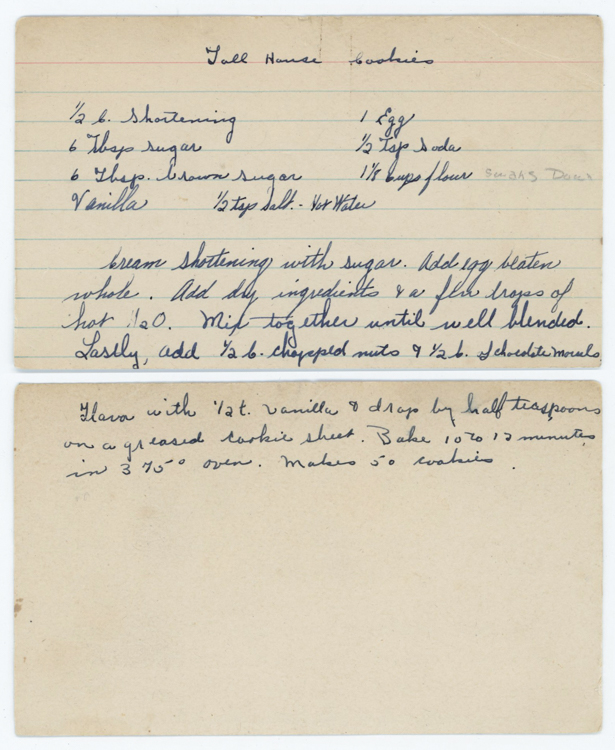 Toll House Cookies
1/2 c. Shortening 1 Egg
6 Tbsp sugar 1/2 tsp Soda
6 Tbsp. brown sugar 1 1/8 cups flour Swans Down
Vanilla 1/2 tsp salt. - Hot Water
Cream shortening with sugar. Add egg beaten
whole. Add dry ingredients & a few drops of
hot H2O. Mix together until well blended.
Lastly, add 1/2 c. chopped nuts & 1/2 c. chocolate morsels
Flavor with 1/2 t. vanilla & drop by half teaspoons
on a greased cookie sheet. Bake 10 to 12 minutes
in 375° oven. Makes 50 cookies.